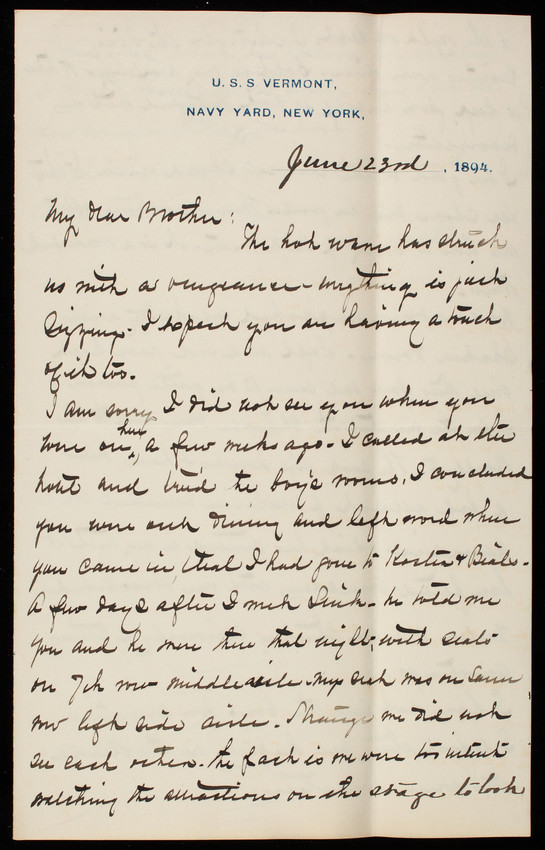 U. S. S VERMONT,
NAVY YARD, NEW YORK,
June 23rd, 1894.
My dear Brother:
The hot wave has struck
us with a vengeance - everything is just
Sizzing. I expect you are having a touch
of it too.
I am sorry I did not see you when you
were on here, a few weeks ago. I called at the
hotel and tried the boy's rooms, I concluded
you were out dining and left word when
you came in, that I had gone to Koster & Bials.
A few days after I met he told me
you and he were there that night, with seats
on 7th row middle aisle. my seat was on same
row left side aisle. Strange we did not
see each other. the fact is we were too intent
watching the attractions on the stage to look